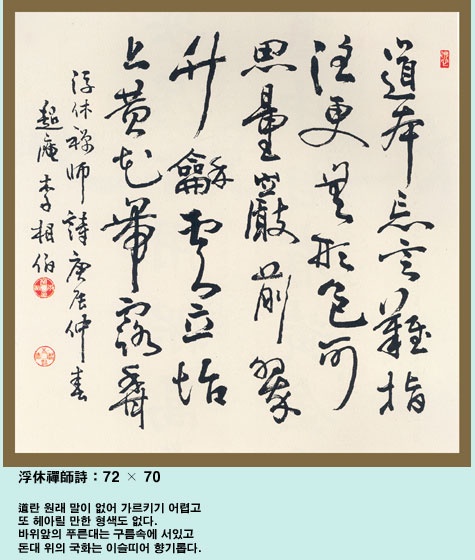 道本忘言難指
注更無形色可
思量巖前翠
竹龢雲立坮
上黃花帶露香
浮休禪師詩 庚辰仲春
超庵 李相伯
浮休禪師詩 : 72 × 70
道란 원래 말이 없어 가르키기 어렵고
또 헤아릴 만한 형색도 없다.
바위앞의 푸른대는 구름속에 서있고
돈대 위의 국화는 이슬띠어 향기롭다.